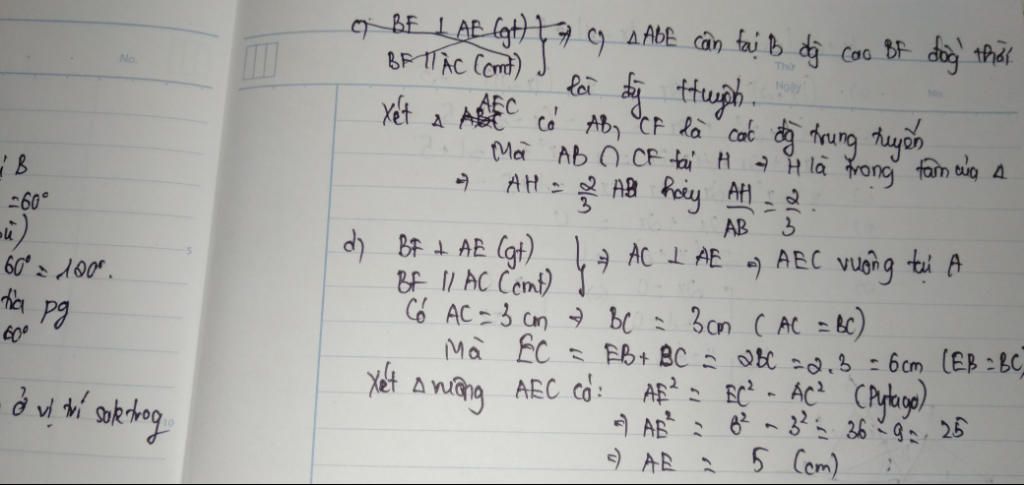 No.
c) BF ⊥ AE (gt)
BF // AC (cmt) } ⇒ c) Δ ABE cân tại B đg cao BF đồg thời
là đg ttuyến.
Xét Δ ABC AEC có AB, CF là các đg trung tuyến
Mà AB ∩ CF tại H → H là trọng tâm của Δ
⇒ AH = 2/3 AB hay AH/AB = 2/3.
d) BF ⊥ AE (gt)
BF // AC (cmt) } ⇒ AC ⊥ AE ⇒ AEC vuông tại A
Có AC = 3 cm ⇒ BC = 3cm (AC = BC)
Mà EC = EB + BC = 2BC = 2.3 = 6cm (EB = BC)
Xét Δ vuông AEC có: AE² = EC² - AC² (Pytago)
⇒ AE² = 6² - 3² = 36 - 9 = 25
⇒ AE = 5 (cm)
B
= 60°
60° = 180°.
tia pg
60°
ở vị trí soletrog